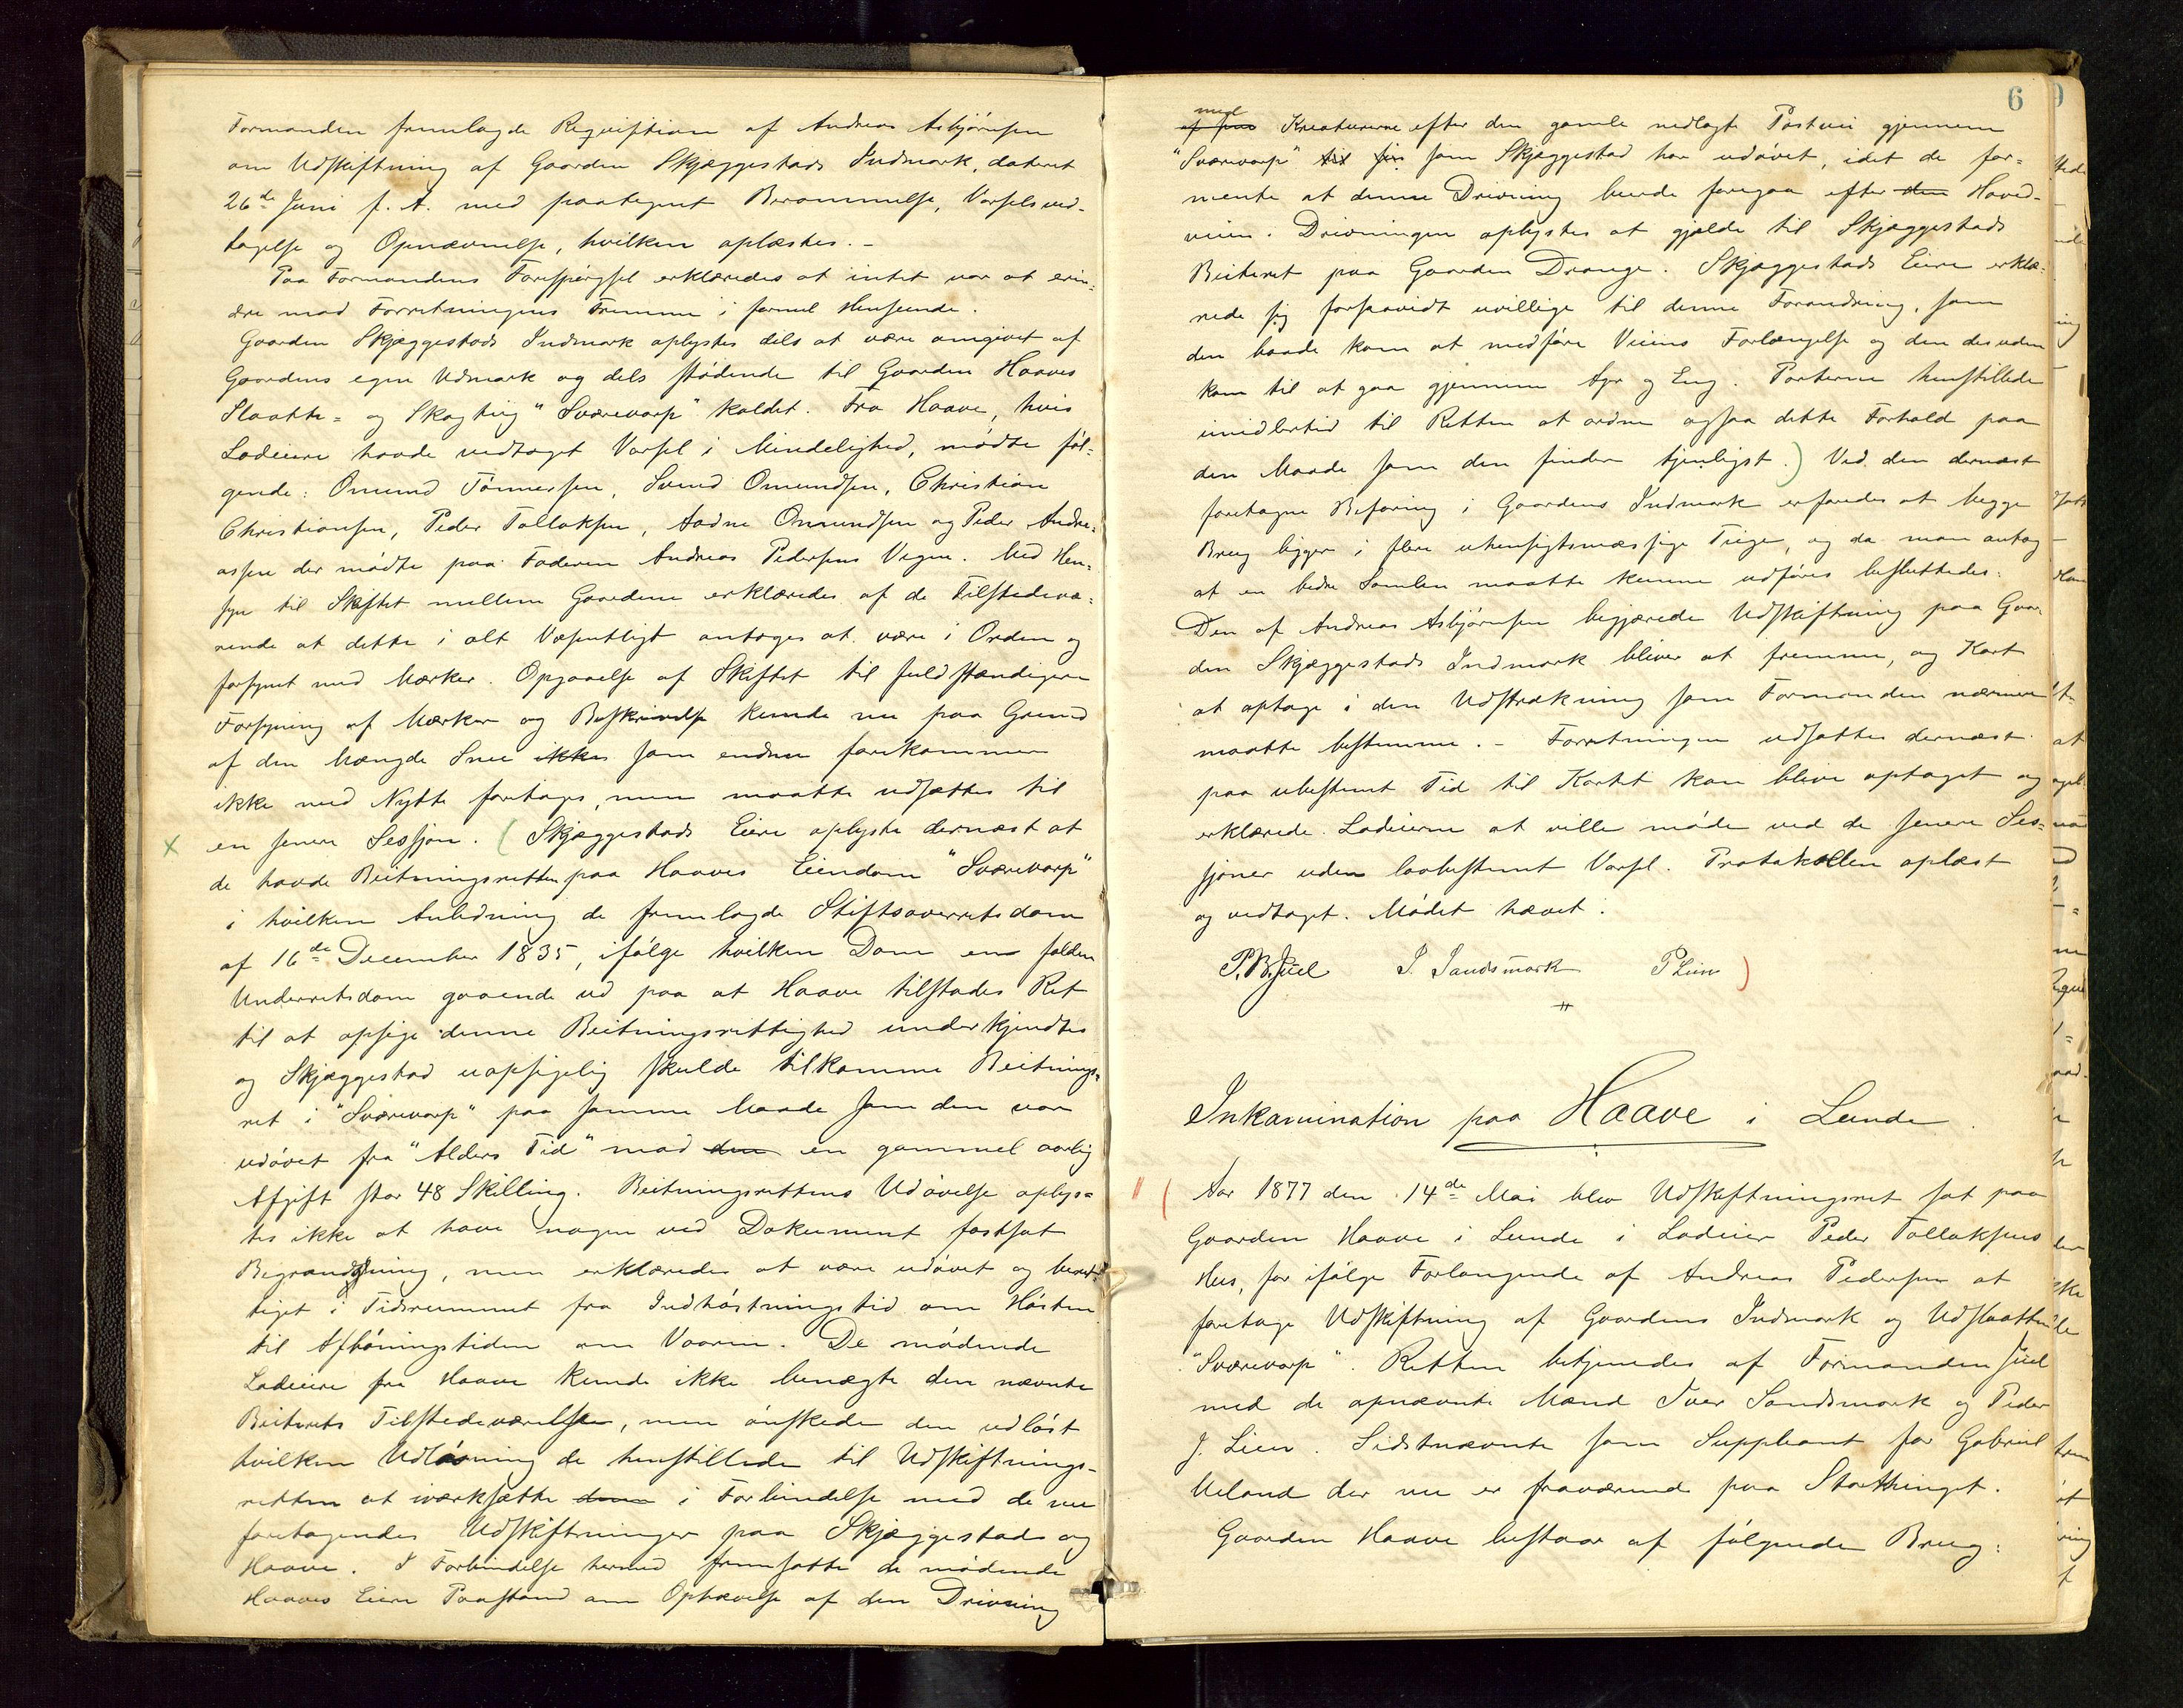 Formanden fremlagde Reqvisition af Andreas Asbjørnsen
om Udskiftning af Gaarden Skjæggestads Indmark, dateret
26de Juni f. A. med paategnet Berammelse, Varselsved-
tagelse og Opnævnelse, hvilken oplæstes. -
Paa Formandens Forespørgsel erklæredes at intet var at erin-
dre mod Forretningens Fremme i formel Henseende.
Gaarden Skjæggestads Indmark oplystes dels at være omgivet af
Gaardens egen Udmark og dels stødende til Gaarden Haaves
Slaatte- og Skogteig "Sværevarp" kaldet. Fra Haave, hvis
Lodeiere havde vedtaget Varsel i Mindelighed, mødte føl-
gende: Omund Tønnessen, Svend Omundsen, Christian
Christiansen, Peder Tollaksen, Aadne Omundsen og Peder Andre-
assen der mødte paa Faderen Andreas Pedersens Vegne. Med Hen-
syn til Skiftet mellem Gaardene erklæredes af de Tilstedevæ-
rende at dette i alt Væsentligt antoges at være i Orden og
forsynet med Mærker. Opgaaelse af Skiftet til fuldstændigere
Forsyning af Mærker og Beskrivelse kunde nu paa Grund
af den Mængde Snee ikke som endnu forekommer
ikke med Nytte foretages, men maatte udsættes til
x en senere Sessjon. ( Skjæggestads Eiere oplyste dernæst at
de havde Beitningsretten paa Haaves Eiendom "Sværevarp"
i hvilken Anledning de fremlagde Stiftsoverretsdom
af 16de December 1835, ifølge hvilken Dom en falden
Underretsdom gaaende ud paa at Haave tilstodes Ret
til at opsige denne Beitningsrettighed underkjendtes
og Skjæggestad uopsigelig skulde tilkomme Beitnings-
ret i "Sværevarp" paa samme Maade som den var
udøvet fra "Alders Tid" mod den en gammel aarlig
Afgift stor 48 Skilling. Beitningsrettens Udøvelse oplys-
tes ikke at have nogen ved Dokument fastsat
Begrændsning, men erklæredes at være udøvet og beret-
tiget i Tidsrummet fra Indhøstningstid om Høsten
til Afhøiningstiden om Vaaren. De mødende
Lodeiere fra Haave kunde ikke benægte den nævnte
Beiterets Tilstedeværelse, men ønskede den udløst
hvilken Udløsning de henstillede til Udskiftnings-
retten at iværksætte denne i Forbindelse med de nu
foretagendes Udskiftninger paa Skjæggestads og
Haave. I Forbindelse hermed fremsatte de mødende
Haaves Eiere Paastand om Ophævelse af den Drivning
6
med
af sine Kreaturerne efter den gamle nedlagte Postvei gjennem
"Sværevarp" til som Skjæggestad har udøvet, idet de for-
mente at denne Drivning burde foregaa efter den Hoved-
veien. Drivningen oplystes at gjælde til Skjæggestads
Beiteret paa Gaarden Drange. Skjæggestads Eiere erklæ-
rede sig forsaavidt uvillige til denne Forandring, som
den baade kom at medføre Veiens Forlængelse og den desuden
kom til at gaa gjennem Ager og Eng. Parterne henstillede
imidlertid til Retten at ordne ogsaa dette Forhold paa
den Maade som den finder tjenligst.) Ved den dernæst
foretagne Befaring i Gaardens Indmark erfaredes at begge
Brug ligger i flere uhensigtsmæssige Teige, og da man antog
at en bedre Samlen maatte kunne udføres besluttedes:
Den af Andreas Asbjørnsen begjærede Udskiftning paa Gaar-
den Skjæggestads Indmark bliver at fremme, og Kart
at optage i den Udstrækning som Formanden nærmere
maatte bestemme. - Forretningen udsattes dernæst
paa ubestemt Tid til Kartet kan blive optaget og
erklærede Lodeierne at ville møde ved de senere Ses-
sjoner uden lovbestemt Varsel. Protokollen oplæst
og vedtaget. Mødet hævet.
P.B.Juel I. Sandsmark P Lien )
Inkamination paa Haave i Lunde
( Aar 1877 den 14de Mai blev Udskiftningsret sat paa
Gaarden Haave i Lunde i Lodeier Peder Tollaksens
Hus, for ifølge Forlangende af Andreas Pedersen at
foretage Udskiftning af Gaardens Indmark og Udslaatten
"Sværevarp". Retten betjenedes af Formanden Juel
med de opnævnte Mænd Iver Sandsmark og Peder
J. Lien. Sidstnævnte som Suppleant for Gabriel
Ueland der nu er fraværende paa Storthinget.
Gaarden Haave bestaar af følgende Brug: